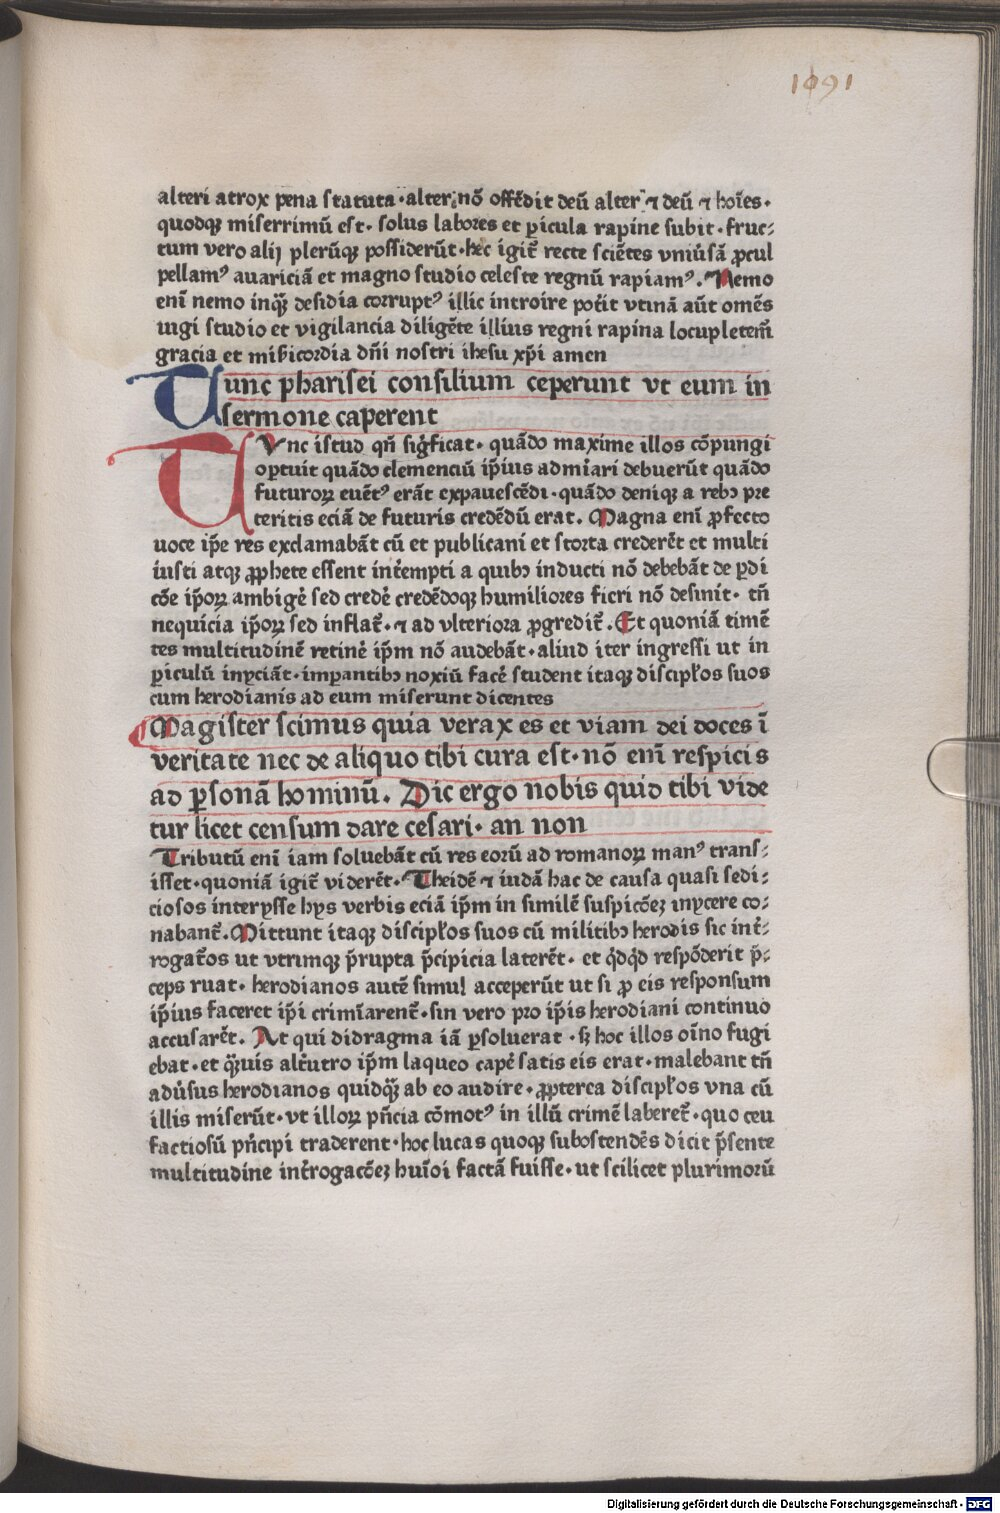 1491
alteri atrox pena statuta · alteri nō offēdit deū alter ⁊ deū ⁊ hoīes ·
quodqꝫ miserrimū est · solus labores et ꝑicula rapine subit · fruc-
tum vero alij plerūqꝫ possiderūt · hec igit᷑ recte sciētes vniūsā ꝓcul
pellamꝰ auariciā et magno studio celeste regnū rapiamꝰ . Nemo
enī nemo inqꝫ̄ desidia corruptꝰ illic introire potīt vtinā aūt omēs
uigi studio et vigilancia diligēte illius regni rapina locupletem̄
gracia et mis̄icordia dn̄i nostri ihesu xp̄i amen
Tunc pharisei consilium ceperunt vt eum in
sermone caperent
TVnc istud qn̄ sig̉ficat · quādo maxime illos cōpungi
oꝑtuit quādo clemenciū ip̄ius admirari debuerūt quādo
futuroꝝ euētꝰ erāt expauescēdi · quādo deniqꝫ a rebꝰ pre
teritis eciā de futuris credēdū erat . Magna enī ꝓfecto
uoce ip̄e res exclamabāt cū et publicani et storta crederēt et multi
iusti atqꝫ ꝓphete essent int̄empti a quibꝰ inducti nō debebāt de ꝑdi
cōe ip̄oꝝ ambigē sed credē credēdoqꝫ humiliores fieri nō desinīt · tn̄
nequicia ip̄oꝝ sed inflat᷑ · ⁊ ad vlteriora ꝓgredit᷑ . Et quoniā timē
tes multitudinē retinē ip̄m nō audebāt · aliud iter ingressi ut in
ꝑiculū inyciāt · imꝑantibꝰ noxiū facē student itaqꝫ discipłos suos
cum herodianis ad eum miserunt dicentes
Magister scimus quia verax es et viam dei doces ī
veritate nec de aliquo tibi cura est · nō enī respicis
ad ꝑsonā hominū . Dic ergo nobis quid tibi vide
tur licet censum dare cesari · an non
Tributū enī iam soluebāt cū res eorū ad romanoꝝ manꝰ trans-
isset · quoniā igit᷑ viderēt · Theidē ⁊ iudā hac de causa quasi sedi-
ciosos interysse hys verbis eciā ip̄m in similē suspicōeꝫ inycere co-
nabant᷑ . Mittunt itaqꝫ discipłos suos cū militibꝰ herodis sic int̄-
rogat̄os ut vtrimqꝫ p̄rupta p̄cipicia laterēt · et q̇dq̇d respōderit p̄-
ceps ruat · herodianos autē simul acceperūt ut si ꝓ eis responsum
ip̄ius faceret ip̄i crimīarent᷑ · sin vero pro ip̄is herodiani continuo
accusarēt . At qui didragma iā ꝑsoluerat · sꝫ hoc illos oīno fugi
ebat · et qꝫ̄uis alt̄utro ip̄m laqueo capē satis eis erat · malebant tn̄
adūsus herodianos quidqꝫ̄ ab eo audire · ꝓpterea discipłos vna cū
illis miserūt · vt illoꝝ pn̄cia cōmotꝰ in illū crimē laberet᷑ · quo ceu
factiosū pn̄cipi traderent · hoc lucas quoqꝫ subostendēs dicit p̄sente
multitudine int̄rogacōeꝫ huīoi factā fuisse · ut scilicet plurimorū
Digitalisierung gefördert durch die Deutsche Forschungsgemeinschaft - DFG